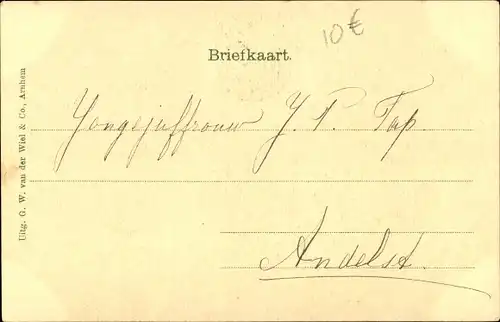 10€
Briefkaart.
Uitg. G. W. van der Wiel & Co., Arnhem
Yongejuffrouw J. P. Tap.
Andelst.